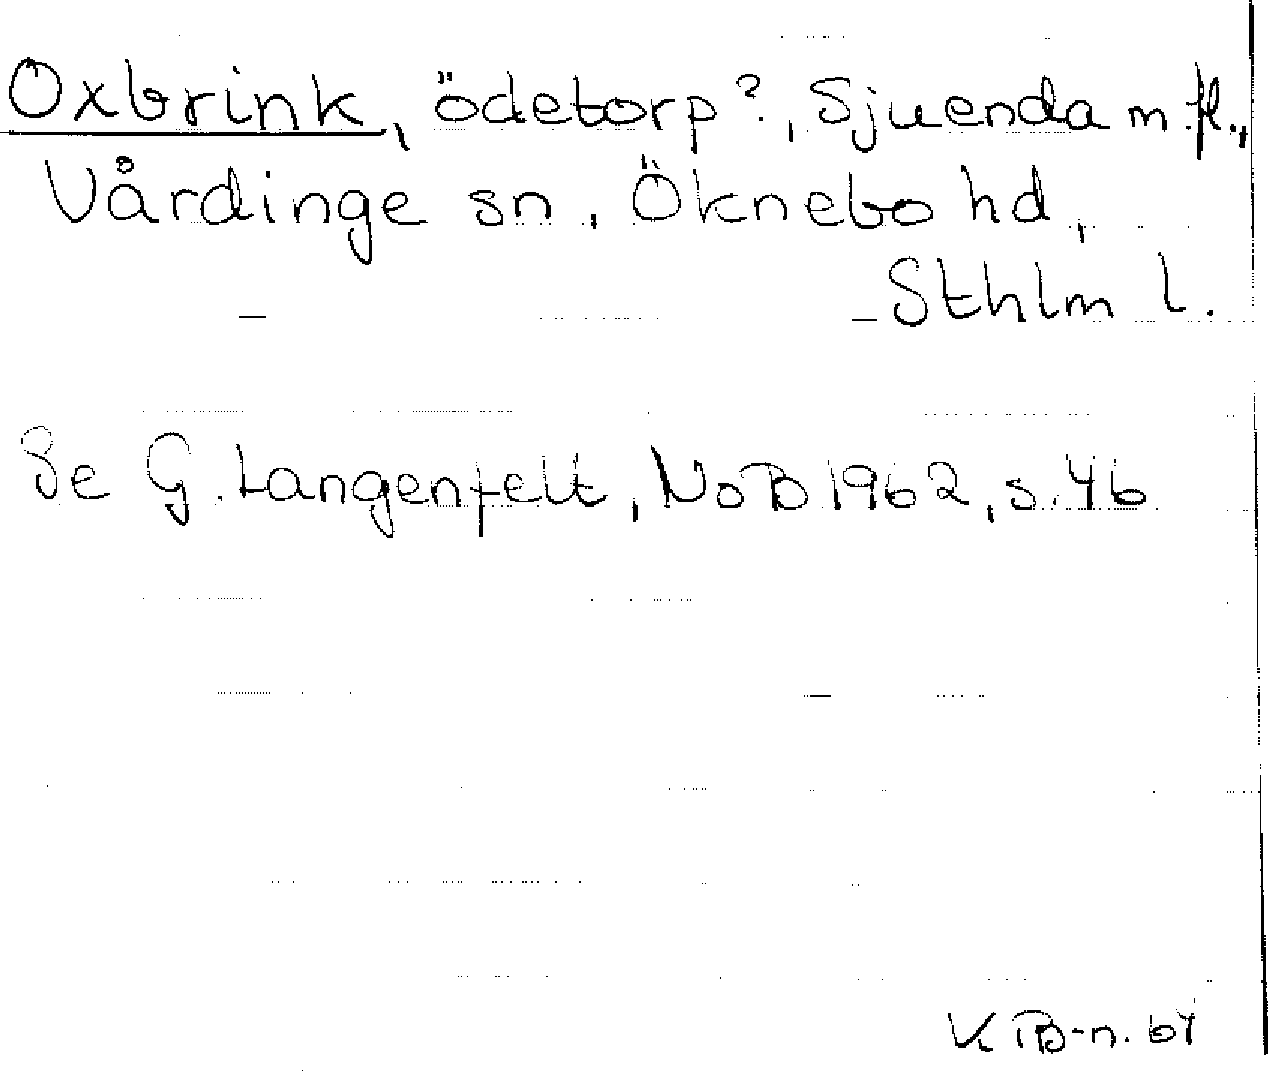 Oxbrink, ödetorp?, Sjuenda m.fl.,
Vårdinge sn, Öknebo hd,
Sthlm l.
Se G. Langenfelt, NoB 1962, s. 46
K B-n. 64